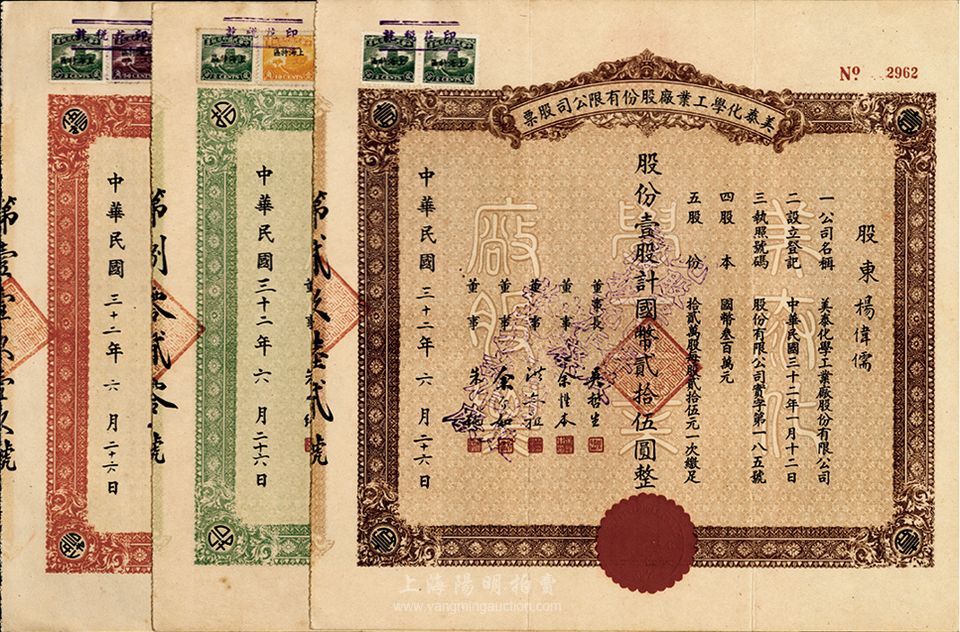 印花稅訖
上海特區
2 CENTS
10 CENTS
中華民國三十二年六月二十六日
印花稅訖
上海特區
2 CENTS
10 CENTS
中華民國三十二年六月二十六日
第捌零貳零號
印花稅訖
2 CENTS
2 CENTS
No 2962
美泰化學工業廠股份有限公司股票
壹
壹
股東楊偉儒
一公司名稱 美泰化學工業廠股份有限公司
二設立登記 中華民國三十二年一月十二日
三執照號碼 股份有限公司實字第一八五號
四股本 國幣叁百萬元
五股份 拾貳萬股每股貳拾伍元一次繳足
股份壹股計國幣貳拾伍圓整
董事長
董事 余性本
董事
董事
董事
中華民國三十二年六月二十六日
第貳玖陸貳號
壹
壹
上海陽明拍賣
www.yangmingauction.com